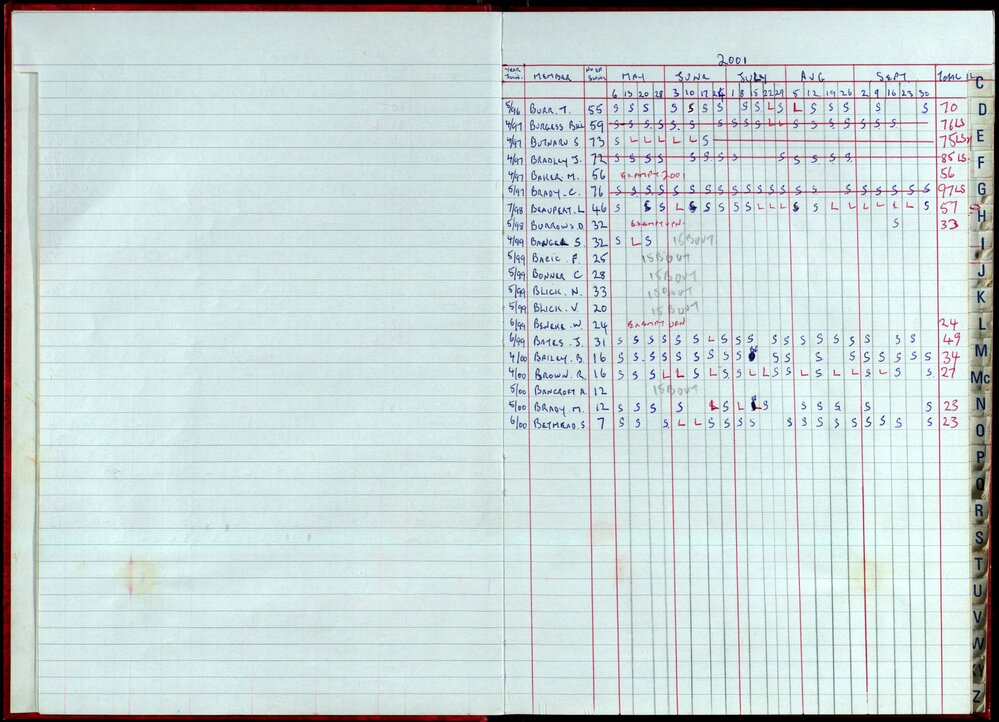 2001
YEAR JOIN. MEMBER NO OF SWIMS MAY JUNE JULY AUG SEPT. TOTAL
6 13 20 28 3 10 17 24 1 8 15 22 29 5 12 19 26 2 9 16 23 30
5/96 BURR. T. 55 S S S S S S S S S S L S L S S S S S 70
4/97 BURGESS BILL 59 S S S S S S S S S S L L S S S S S S S 76LS
4/97 BUTNARU S 73 S L L L L L S 75LS
4/97 BRADLEY J. 72 S S S S S S S S S S S S S 85 LS.
4/97 BAKER. M. 56 EXEMPT 2001 56
5/97 BRADY. C. 76 S S S S S S S S S S S S S S S S S S S S S 97LS
7/98 BEAUPERT. L 46 S S S L S S S S S L L L S S L L L L L L S 57
5/98 BURROWS D. 32 S 33
4/99 32 S L S ISBOUT
5/99 BACIC. F. 25 ISBOUT
5/99 BONNER C 28 ISBOUT
5/99 BLICK. N. 33 ISBOUT
5/99 BLICK. V. 20 ISBOUT
6/99 BENEKE. W. 24 24
6/99 BATES. J. 31 S S S S S S L S S S S S S S S S S S 49
4/00 BAILEY. B. 16 S S S S S S S S S S S S S S S S S S 34
4/00 BROWN. R. 16 S S S L L S L S S L L S S L S L L S L S S 27
5/00 BANCROFT A. 12 ISBOUT
5/00 BRADY. M. 12 S S S S L S L L S S S S S S 23
6/00 BETHEAD. S. 7 S S S L L S S S S S S S S S S S S S 23
C
D
E
F
G
H
I
J
K
L
M
Mc
N
O
P
Q
R
S
T
U
V
W
XY
Z